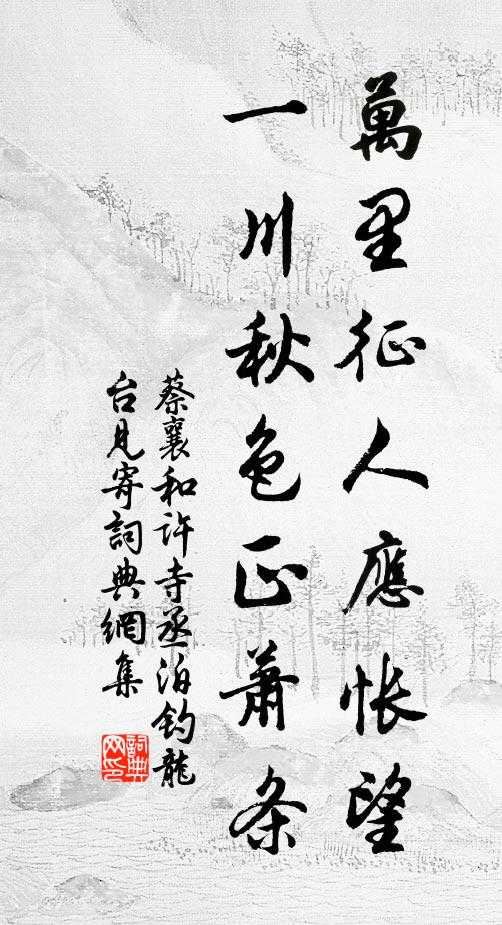 萬里征人應悵望
一川秋色正蕭条
蔡襄和許寺丞泊钓龍
台見寄詞典網集
詞典
网印